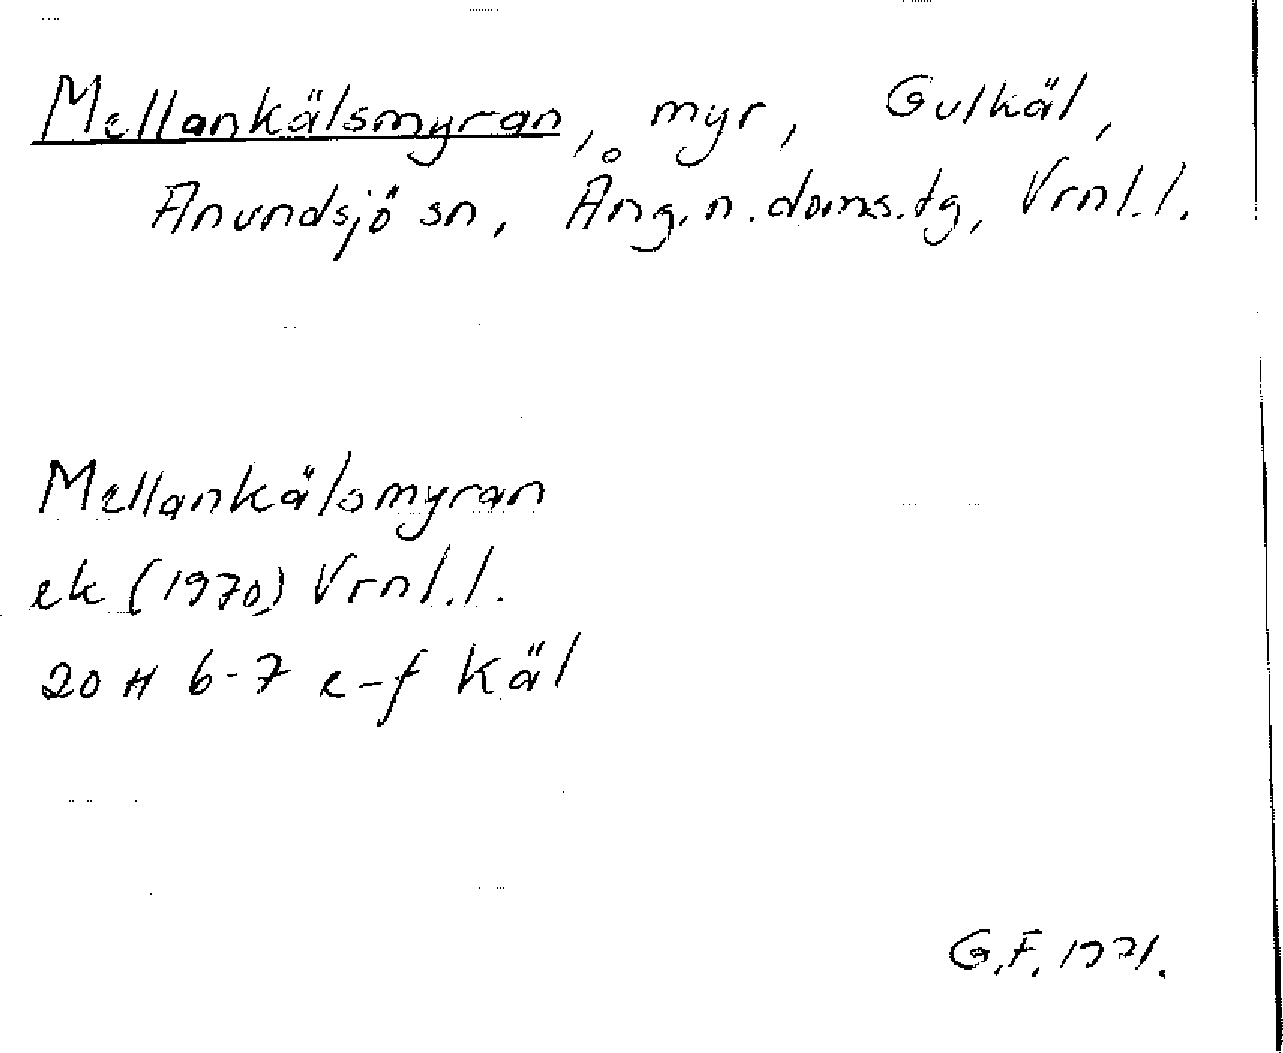 Mellankälsmyran, myr, Gulkäl,
Anundsjö sn, Ång. n. doms.tg, Vrnl.l.
Mellankälsmyran
ek (1970) Vrnl.l.
20 H 6-7 e-f Käl
G.F. 1971.